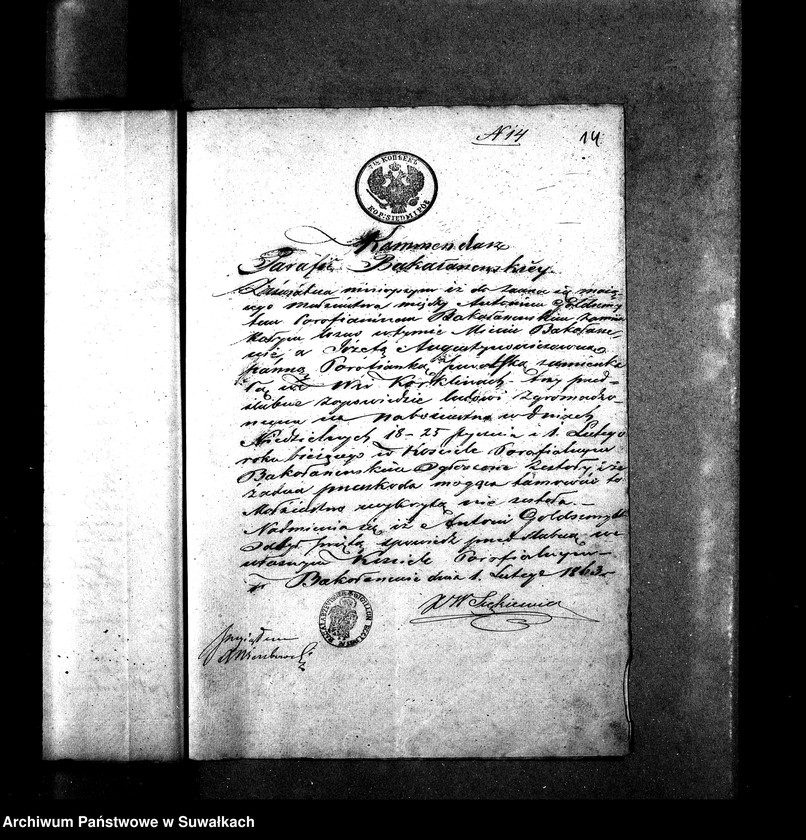 N 14
14
7½ KOPĚEKЪ
KOP: SIEDM I PÓŁ
Kommendarz
Parafii Bakałarzewskiey
niniejszym iż do zawarcia mają-
cego małżeństwa między Antonim Goldszmy-
tem Parafianinem Bakałarzewskim zamiesz-
kałym w tymże Mieście Bakałarze-
wie, a Józefą Augustynowiczowną
panną Parafianką zamieszka-
łą we Wsi Korklinach trzy przed-
ślubne zapowiedzie ludowi zgromadzo-
nemu na nabożeństwo w dniach
Niedzielnych 18 - 25 stycznia i 1. Lutego
roku bieżącego w Kościele Parafialnym
Bakałarzewskim ogłoszone zostały, i że
żadna przeszkoda mogąca tamować to
Małżeństwo wykrytą nie została. -
Nadmienia się iż Antoni Goldszmyt
odbył spowiedź przedślubną we
własnym Kościele Parafialnym -
w Bakałarzewie dnia 1. Lutego 1863 r.
X W
Przyjąłem
Archiwum Państwowe w Suwałkach